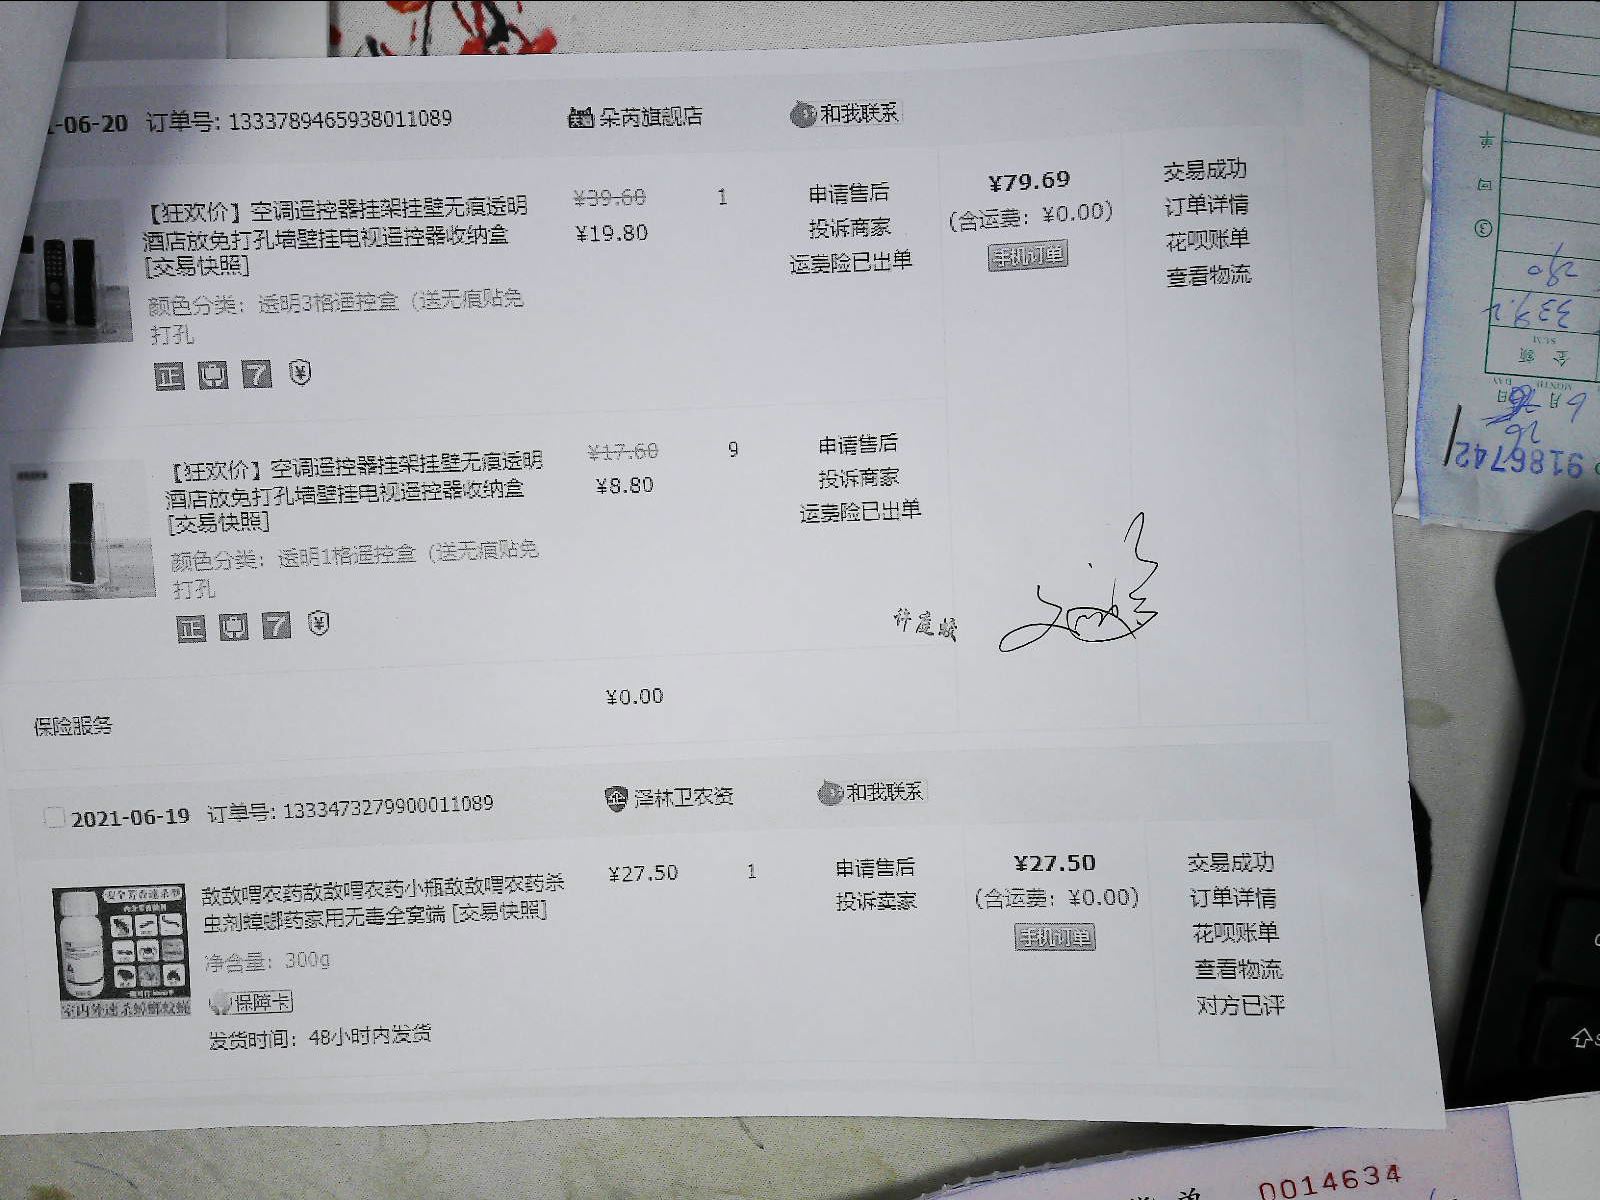 -06-20 订单号: 1333789465938011089 朵芮旗舰店 和我联系
【狂欢价】空调遥控器挂架挂壁无痕透明
酒店放免打孔墙壁挂电视遥控器收纳盒
[交易快照]
颜色分类: 透明3格遥控盒 (送无痕贴免
打孔
正 7 ¥
¥39.60
¥19.80
1
申请售后
投诉商家
运费险已出单
¥79.69
(含运费: ¥0.00)
手机订单
交易成功
订单详情
花呗账单
查看物流
【狂欢价】空调遥控器挂架挂壁无痕透明
酒店放免打孔墙壁挂电视遥控器收纳盒
[交易快照]
颜色分类: 透明1格遥控盒 (送无痕贴免
打孔
正 7 ¥
¥17.60
¥8.80
9
申请售后
投诉商家
运费险已出单
保险服务
¥0.00
2021-06-19 订单号: 1333473279900011089 企 泽林卫农资 和我联系
安全芳香速杀型
室内外速杀蟑螂蚊蝇
敌敌喟农药敌敌喟农药小瓶敌敌喟农药杀
虫剂蟑螂药家用无毒全窝端 [交易快照]
净含量: 300g
保障卡
发货时间: 48小时内发货
¥27.50
1
申请售后
投诉卖家
¥27.50
(含运费: ¥0.00)
手机订单
交易成功
订单详情
花呗账单
查看物流
对方已评
9186742
6月 26日
MONTH DAY
金额
SUM
339.2
290
③
回
单
0014634